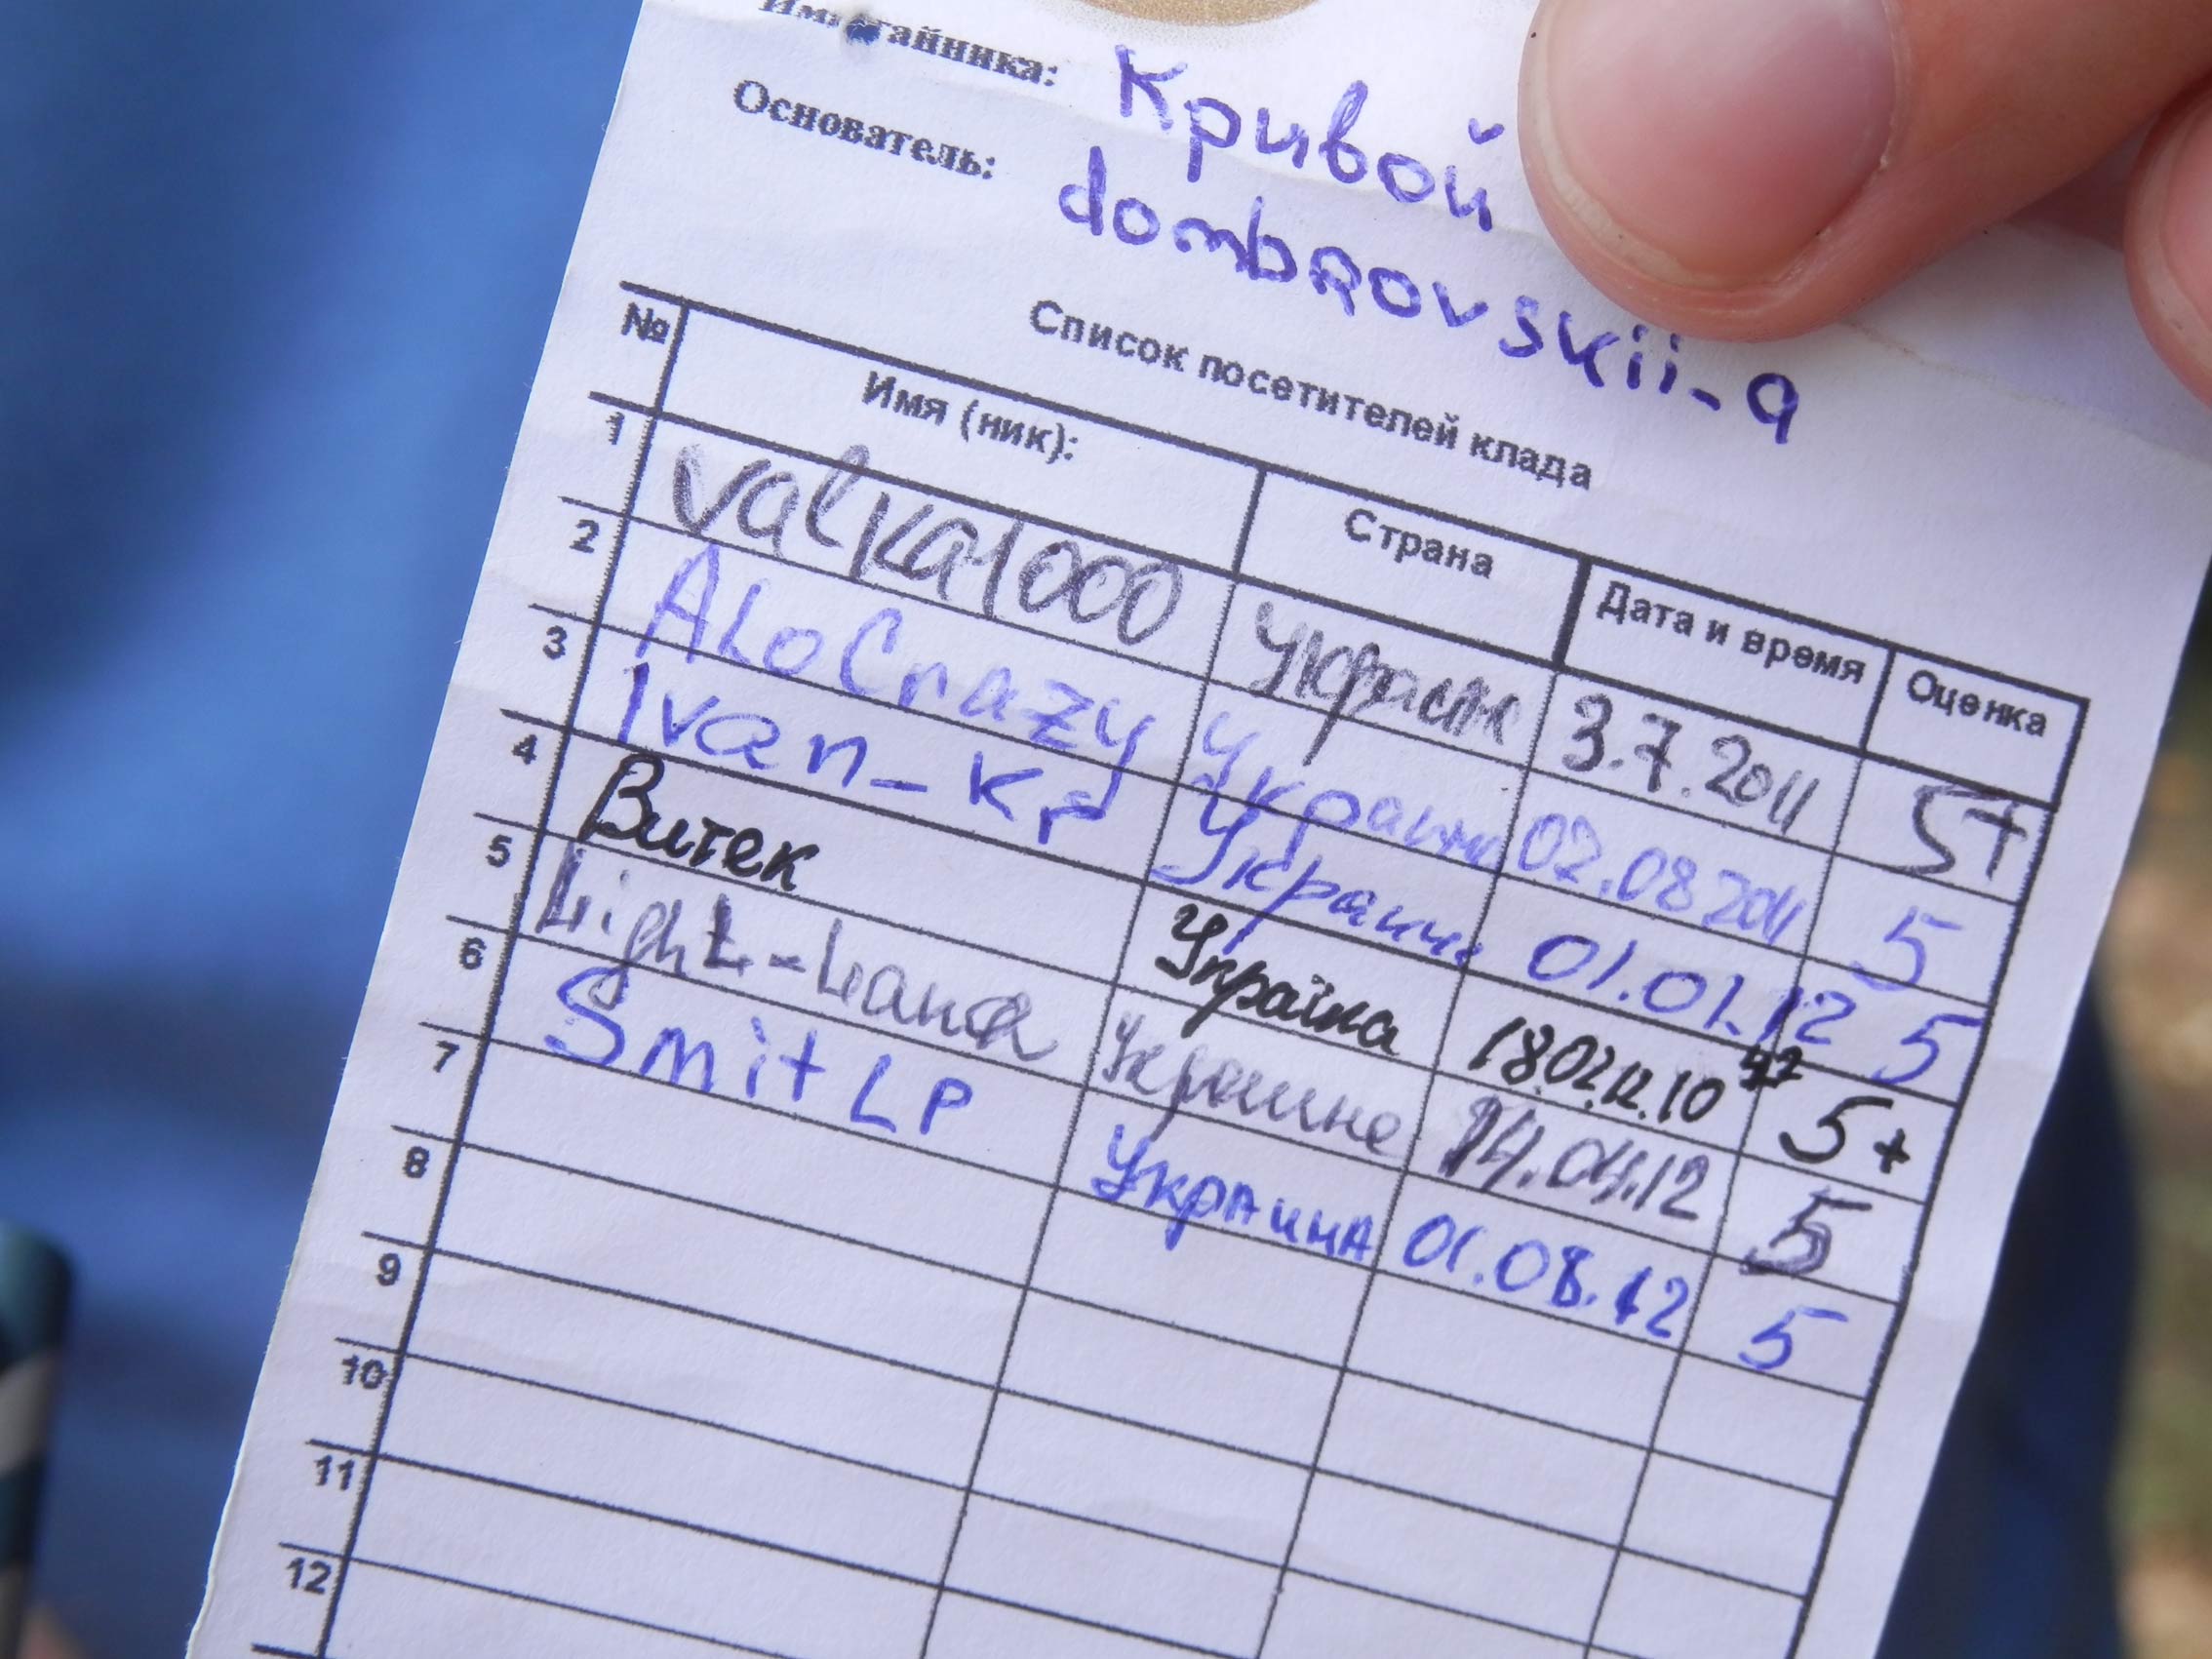 тайника: Кривой
Основатель: dombrovskii-a
Список посетителей клада
№ Имя (ник): Страна Дата и время Оценка
1 valka1000 Украина 3.7.2011 5+
2 ALoCrazy Украина 02.08 2011 5
3 Ivan_Kr Украина 01.01.12 5
4 Витек Україна 18.02.12.10 42 5+
5 Light-hand Украине 14.04.12 5
6 Smit LP Украина 01.08.12 5
7
8
9
10
11
12